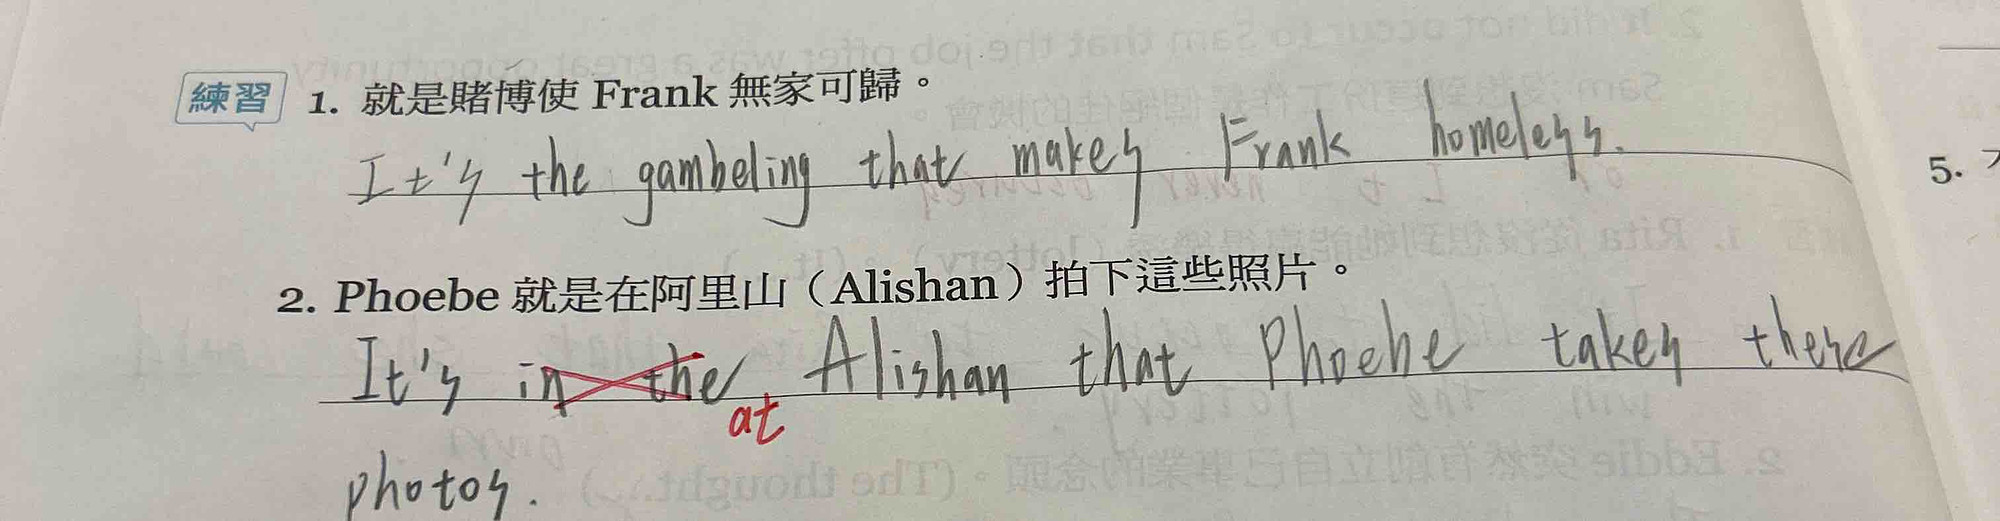 練習 1. 就是賭博使 Frank 無家可歸。
It's the gambeling that makes Frank homeless.
5.
2. Phoebe 就是在阿里山（Alishan）拍下這些照片。
It's in the Alishan that Phoebe takes these
at
photos.